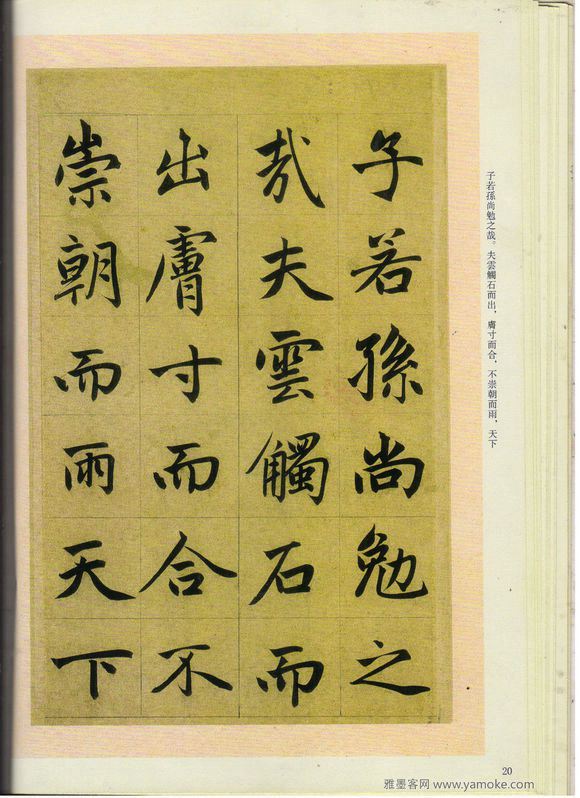 子若孫尚勉之
哉夫雲觸石而
出膚寸而合不
崇朝而雨天下
子若孫尚勉之哉。夫雲觸石而出，膚寸而合，不崇朝而雨，天下
20
雅墨客网 www.yamoke.com